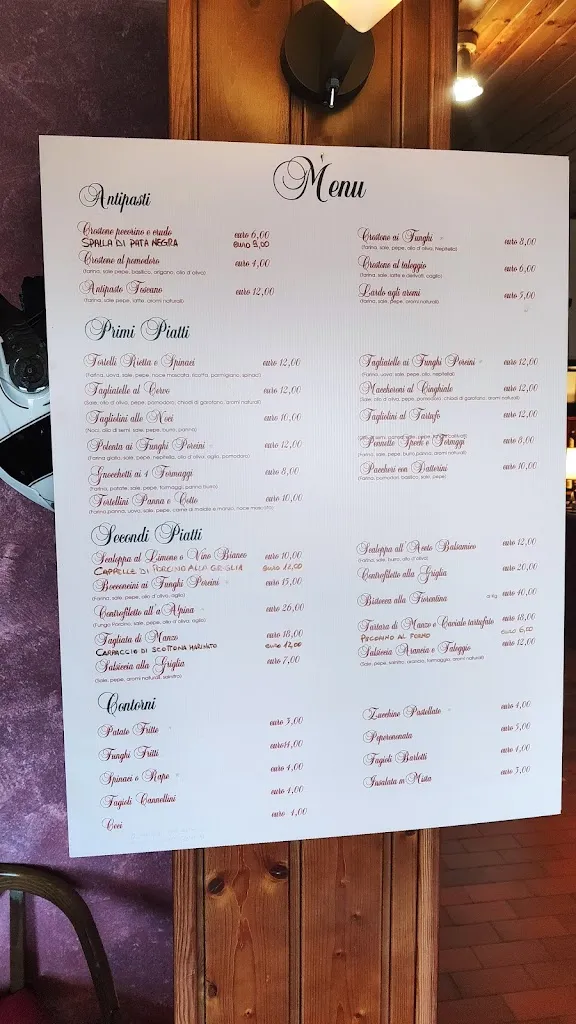 Menu
Antipasti
Crostone pecorino e crudo euro 6,00
SPALLA DI PATA NEGRA euro 9,00
Crostone al pomodoro euro 4,00
(farina, sale, pepe, basilico, origano, olio d'oliva)
Antipasto Toscano euro 12,00
(farina, sale, pepe, latte, aromi naturali)
Crostone ai Funghi euro 8,00
(farina, sale, pepe, olio d'oliva, Nepitella)
Crostone al taleggio euro 6,00
(farina, sale, latte e derivati, caglio)
Lardo agli aromi euro 5,00
(farina, sale, pepe, aromi naturali)
Primi Piatti
Tortelli Ricotta e Spinaci euro 12,00
(Farina, uova, sale, pepe, noce moscata, ricotta, parmigiano, spinaci)
Tagliatelle al Cervo euro 12,00
(Sale, olio d'oliva, pepe, pomodoro, chiodi di garofano, aromi naturali)
Tagliolini alle Noci euro 10,00
(Noci, olio di semi, sale, pepe, burro, panna)
Polenta ai Funghi Porcini euro 12,00
(Farina gialla, sale, pepe, nepitella, olio d'oliva, aglio, pomodoro)
Gnocchetti ai 4 Formaggi euro 8,00
(Farina, patate, sale, pepe, formaggi, panna, burro)
Tortellini Panna e Cotto euro 10,00
Tagliatelle ai Funghi Porcini euro 12,00
(Farina, uova, sale, pepe, olio, nepitella)
Maccheroni al Cinghiale euro 12,00
(Sale, olio d'oliva, pepe, pomodoro, chiodi di garofano, aromi naturali)
Tagliolini al Tartufo euro 12,00
Pennette Speck e Formaggi euro 8,00
(Farina, sale, pepe, burro, panna, aromi naturali)
Paccheri con Datterini euro 10,00
(Farina, pomodori, basilico, sale, pepe)
Secondi Piatti
Scaloppa al Limone o Vino Bianco euro 10,00
CAPPELLE DI PORCINO ALLA GRIGLIA euro
Bocconcini ai Funghi Porcini euro 15,00
(farina, sale, pepe, olio d'oliva, aglio)
Controfiletto all'a Alpina euro 26,00
(Fungo Porcino, sale, pepe, olio d'oliva, aglio)
Tagliata di Manzo euro 18,00
CARPACCIO DI SCOTTONA MARINATO euro 12,00
Salsiccia alla Griglia euro 7,00
(Sale, pepe, aromi naturali, salnitro)
Scaloppa all'Aceto Balsamico euro 12,00
(farina, sale, burro, olio d'oliva)
Controfiletto alla Griglia euro 20,00
Bistecca alla Fiorentina al Kg euro 40,00
Tartara di Manzo e Caviale tartufato euro 18,00
PECORINO AL FORNO euro 6,00
Salsiccia Arancia e Taleggio euro 12,00
(Sale, pepe, salnitro, arancia, formaggio, aromi naturali)
Contorni
Patate Fritte euro 3,00
Funghi Fritti euro14,00
Spinaci o Rape euro 4,00
Fagioli Cannellini euro 4,00
Ceci euro 4,00
Zucchine Pastellate euro 4,00
Peperonata euro 5,00
Fagioli Borlotti euro 4,00
Insalata m Mista euro 3,00